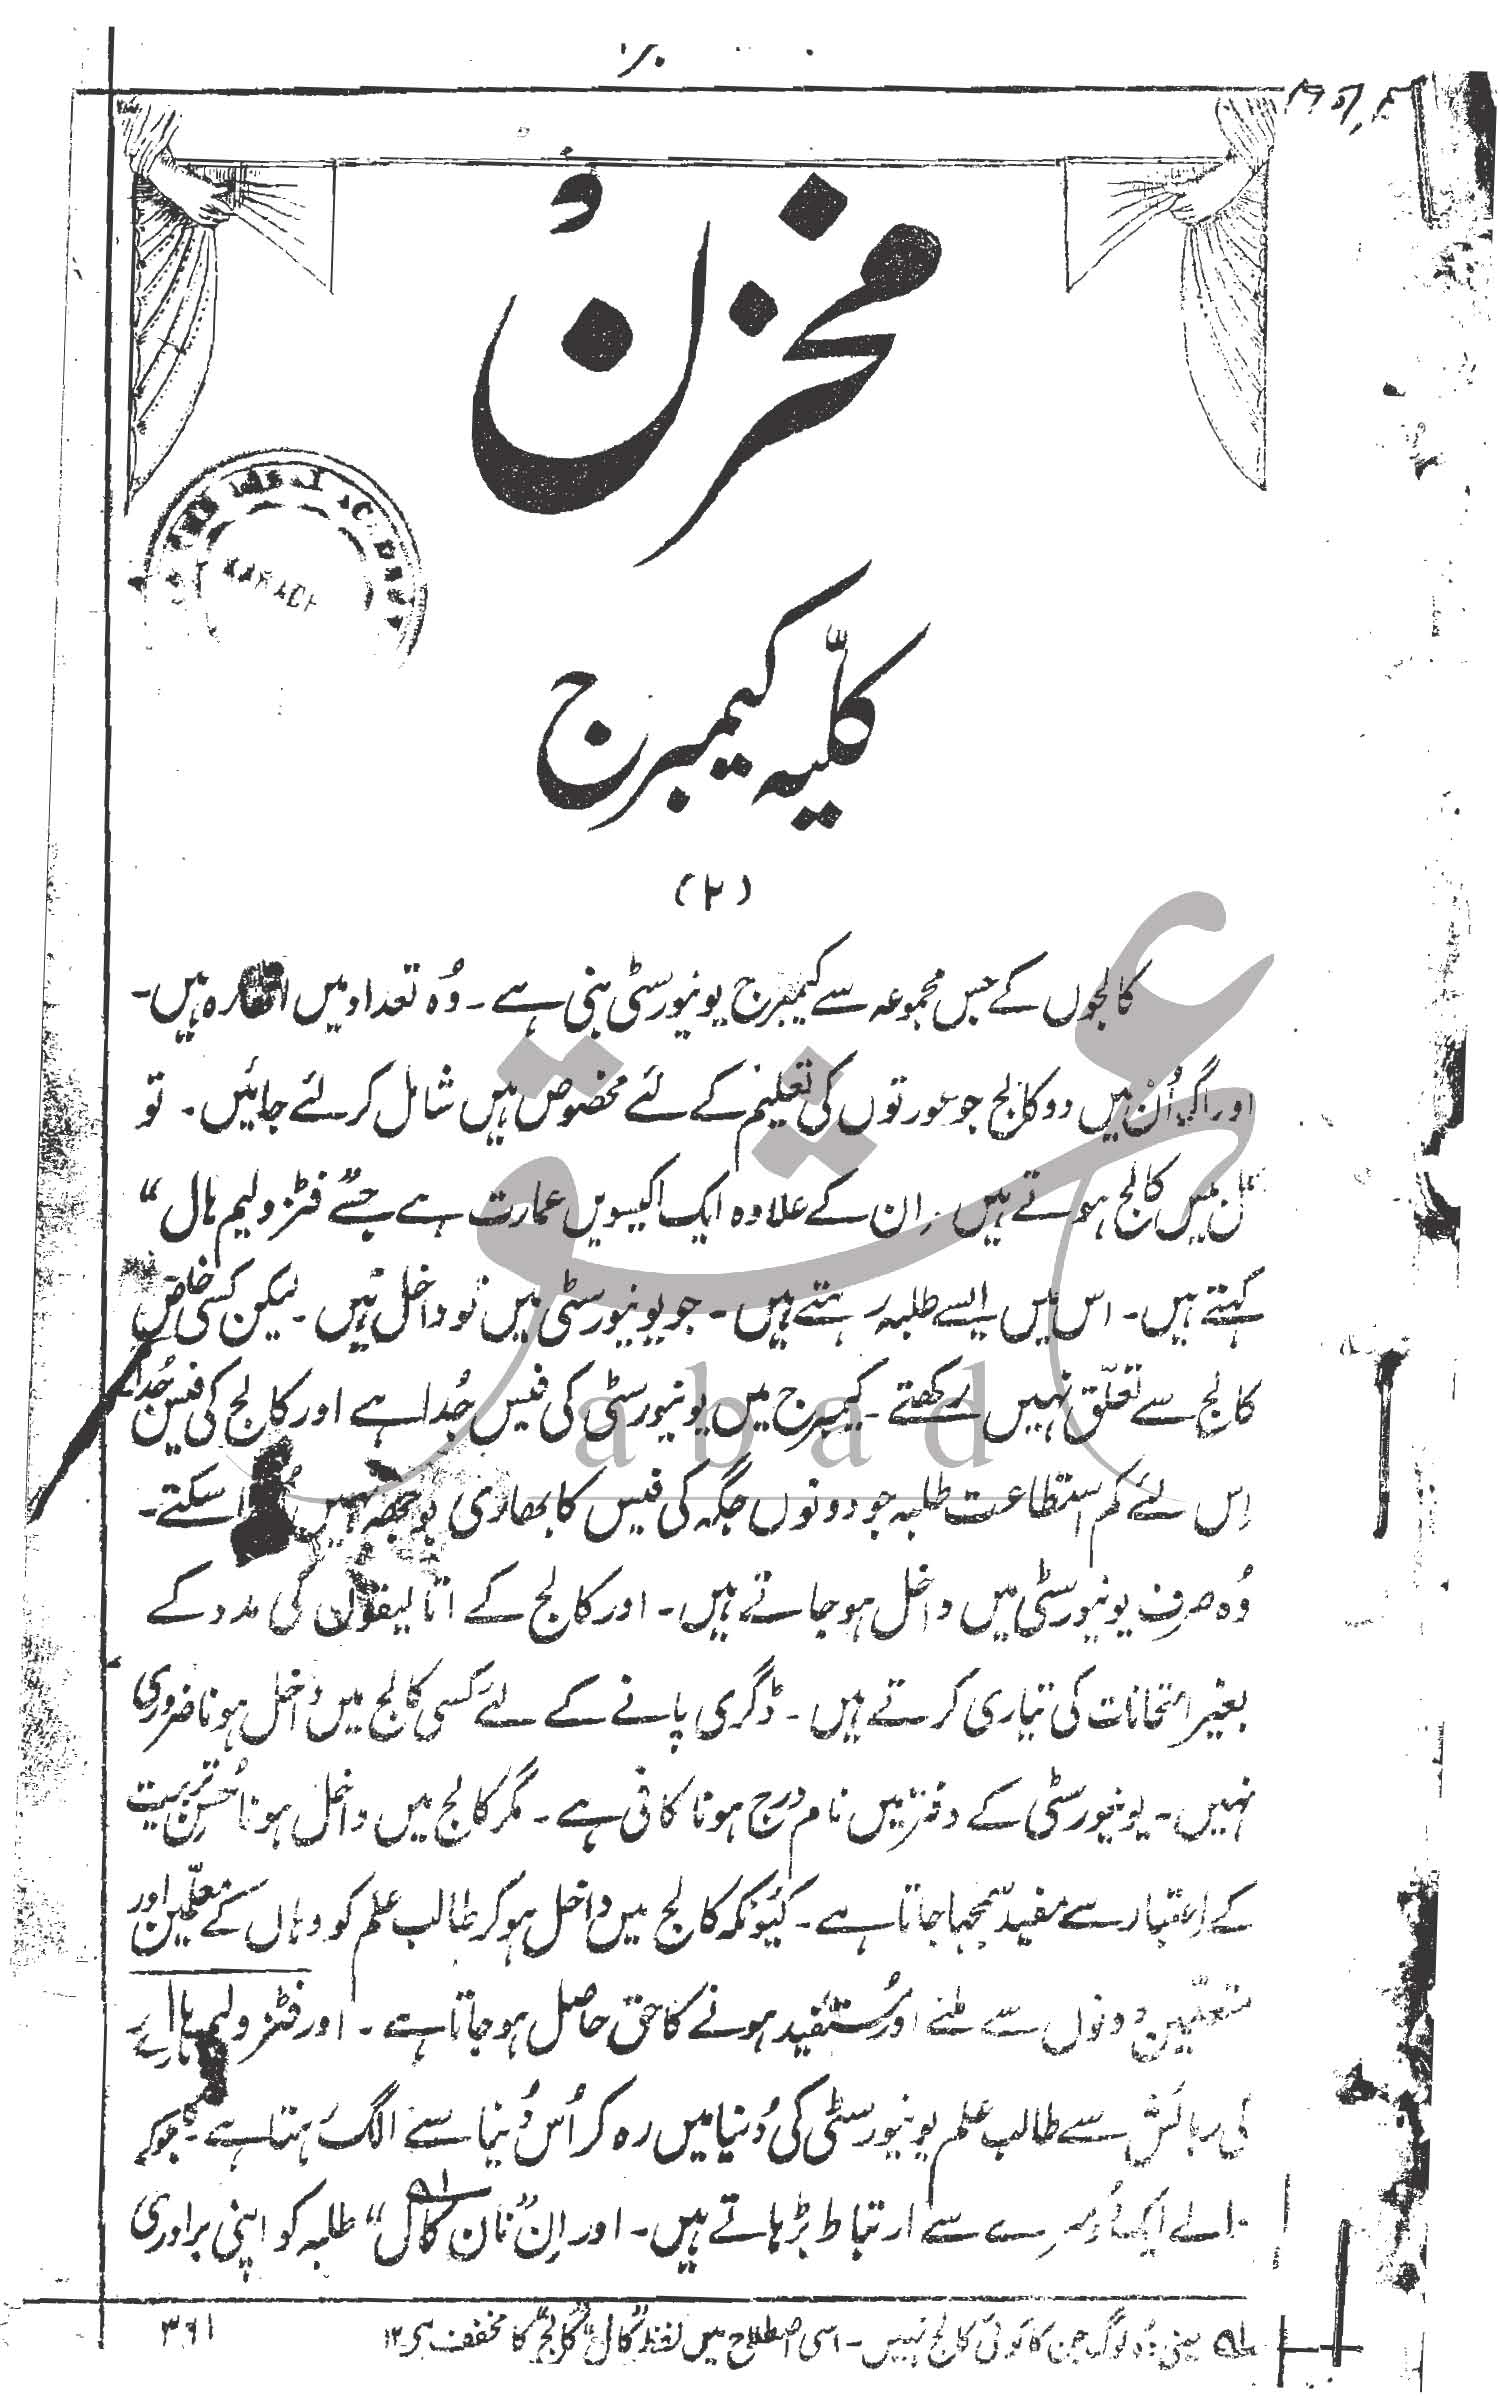 مخزن
KARACHI
کلّیہ کیمبرج
(۲)
کالجوں کے جس مجموعہ سے کیمبرج یونیورسٹی بنی ہے۔ وُہ تعداد میں اٹھارہ ہیں۔
اور اگر اُن میں دو کالج جو عورتوں کی تعلیم کے لئے مخصوص ہیں شامل کر لئے جائیں۔ تو
کُل بیس کالج ہوتے ہیں۔ اِن کے علاوہ ایک اکیسویں عمارت ہے جسے "فٹز ولیم ہال"
کہتے ہیں۔ اس میں ایسے طلبہ رہتے ہیں۔ جو یونیورسٹی میں تو داخل ہیں۔ لیکن کسی خاص
کالج سے تعلّق نہیں رکھتے۔ کیمبرج میں یونیورسٹی کی فیس جُدا ہے اور کالج کی فیس جُدا
اِس لئے کم استطاعت طلبہ جو دونوں جگہ کی فیس کا بھاری بوجھ نہیں اُٹھا سکتے۔
وُہ صرف یونیورسٹی میں داخل ہو جاتے ہیں۔ اور کالج کے اتالیقوں کی مدد کے
بغیر امتحانات کی تیاری کرتے ہیں۔ ڈگری پانے کے لئے کسی کالج میں داخل ہونا ضروری
نہیں۔ یونیورسٹی کے دفتر میں نام درج ہونا کافی ہے۔ مگر کالج میں داخل ہونا حُسنِ تربیت
کے اعتبار سے مفید سمجھا جاتا ہے۔ کیونکہ کالج میں داخل ہو کر طالب علم کو وہاں کے معلّمین اور
متعلّمین دونوں سے ملنے اور مُستفید ہونے کا حق حاصل ہو جاتا ہے۔ اور فٹز ولیم ہال
کی رہائش سے طالب علم یونیورسٹی کی دُنیا میں رہ کر اُس دُنیا سے الگ رہتا ہے۔ جو کہ
والے ایک دُوسرے سے ارتباط بڑہاتے ہیں۔ اور اِن "نان کال" طلبہ کو اپنی برادری
لہ یعنی وُہ لوگ جن کا کوئی کالج نہیں۔ اسی اصطلاح میں لفظ "کال" "کالج" کا مخفف ہے ۱۲
۳۶۱